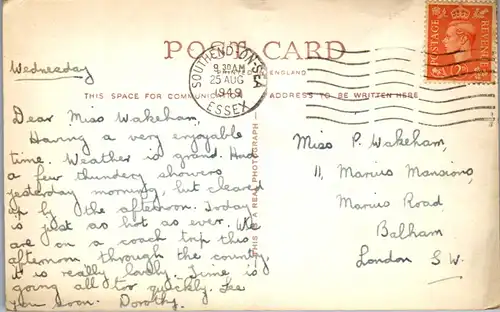 POST CARD
PRINTED IN ENGLAND
THIS SPACE FOR COMMUNICATION ADDRESS TO BE WRITTEN HERE
SOUTHEND-ON-SEA
9.30AM
25 AUG
1949
ESSEX
POSTAGE REVENUE
THIS IS A REAL PHOTOGRAPH
Wednesday
Dear Miss Wakeham,
Having a very enjoyable
time. Weather is grand. Had
a few thundery showers
yesterday morning, but cleared
up by the afternoon. Today
is just as hot as ever. We
are on a coach trip this
afternoon through the country,
it is really lovely. Time is
going all too quickly. See
you soon. Dorothy.
Miss P. Wakeham,
11, Marius Mansions,
Marius Road,
Balham
London S.W.